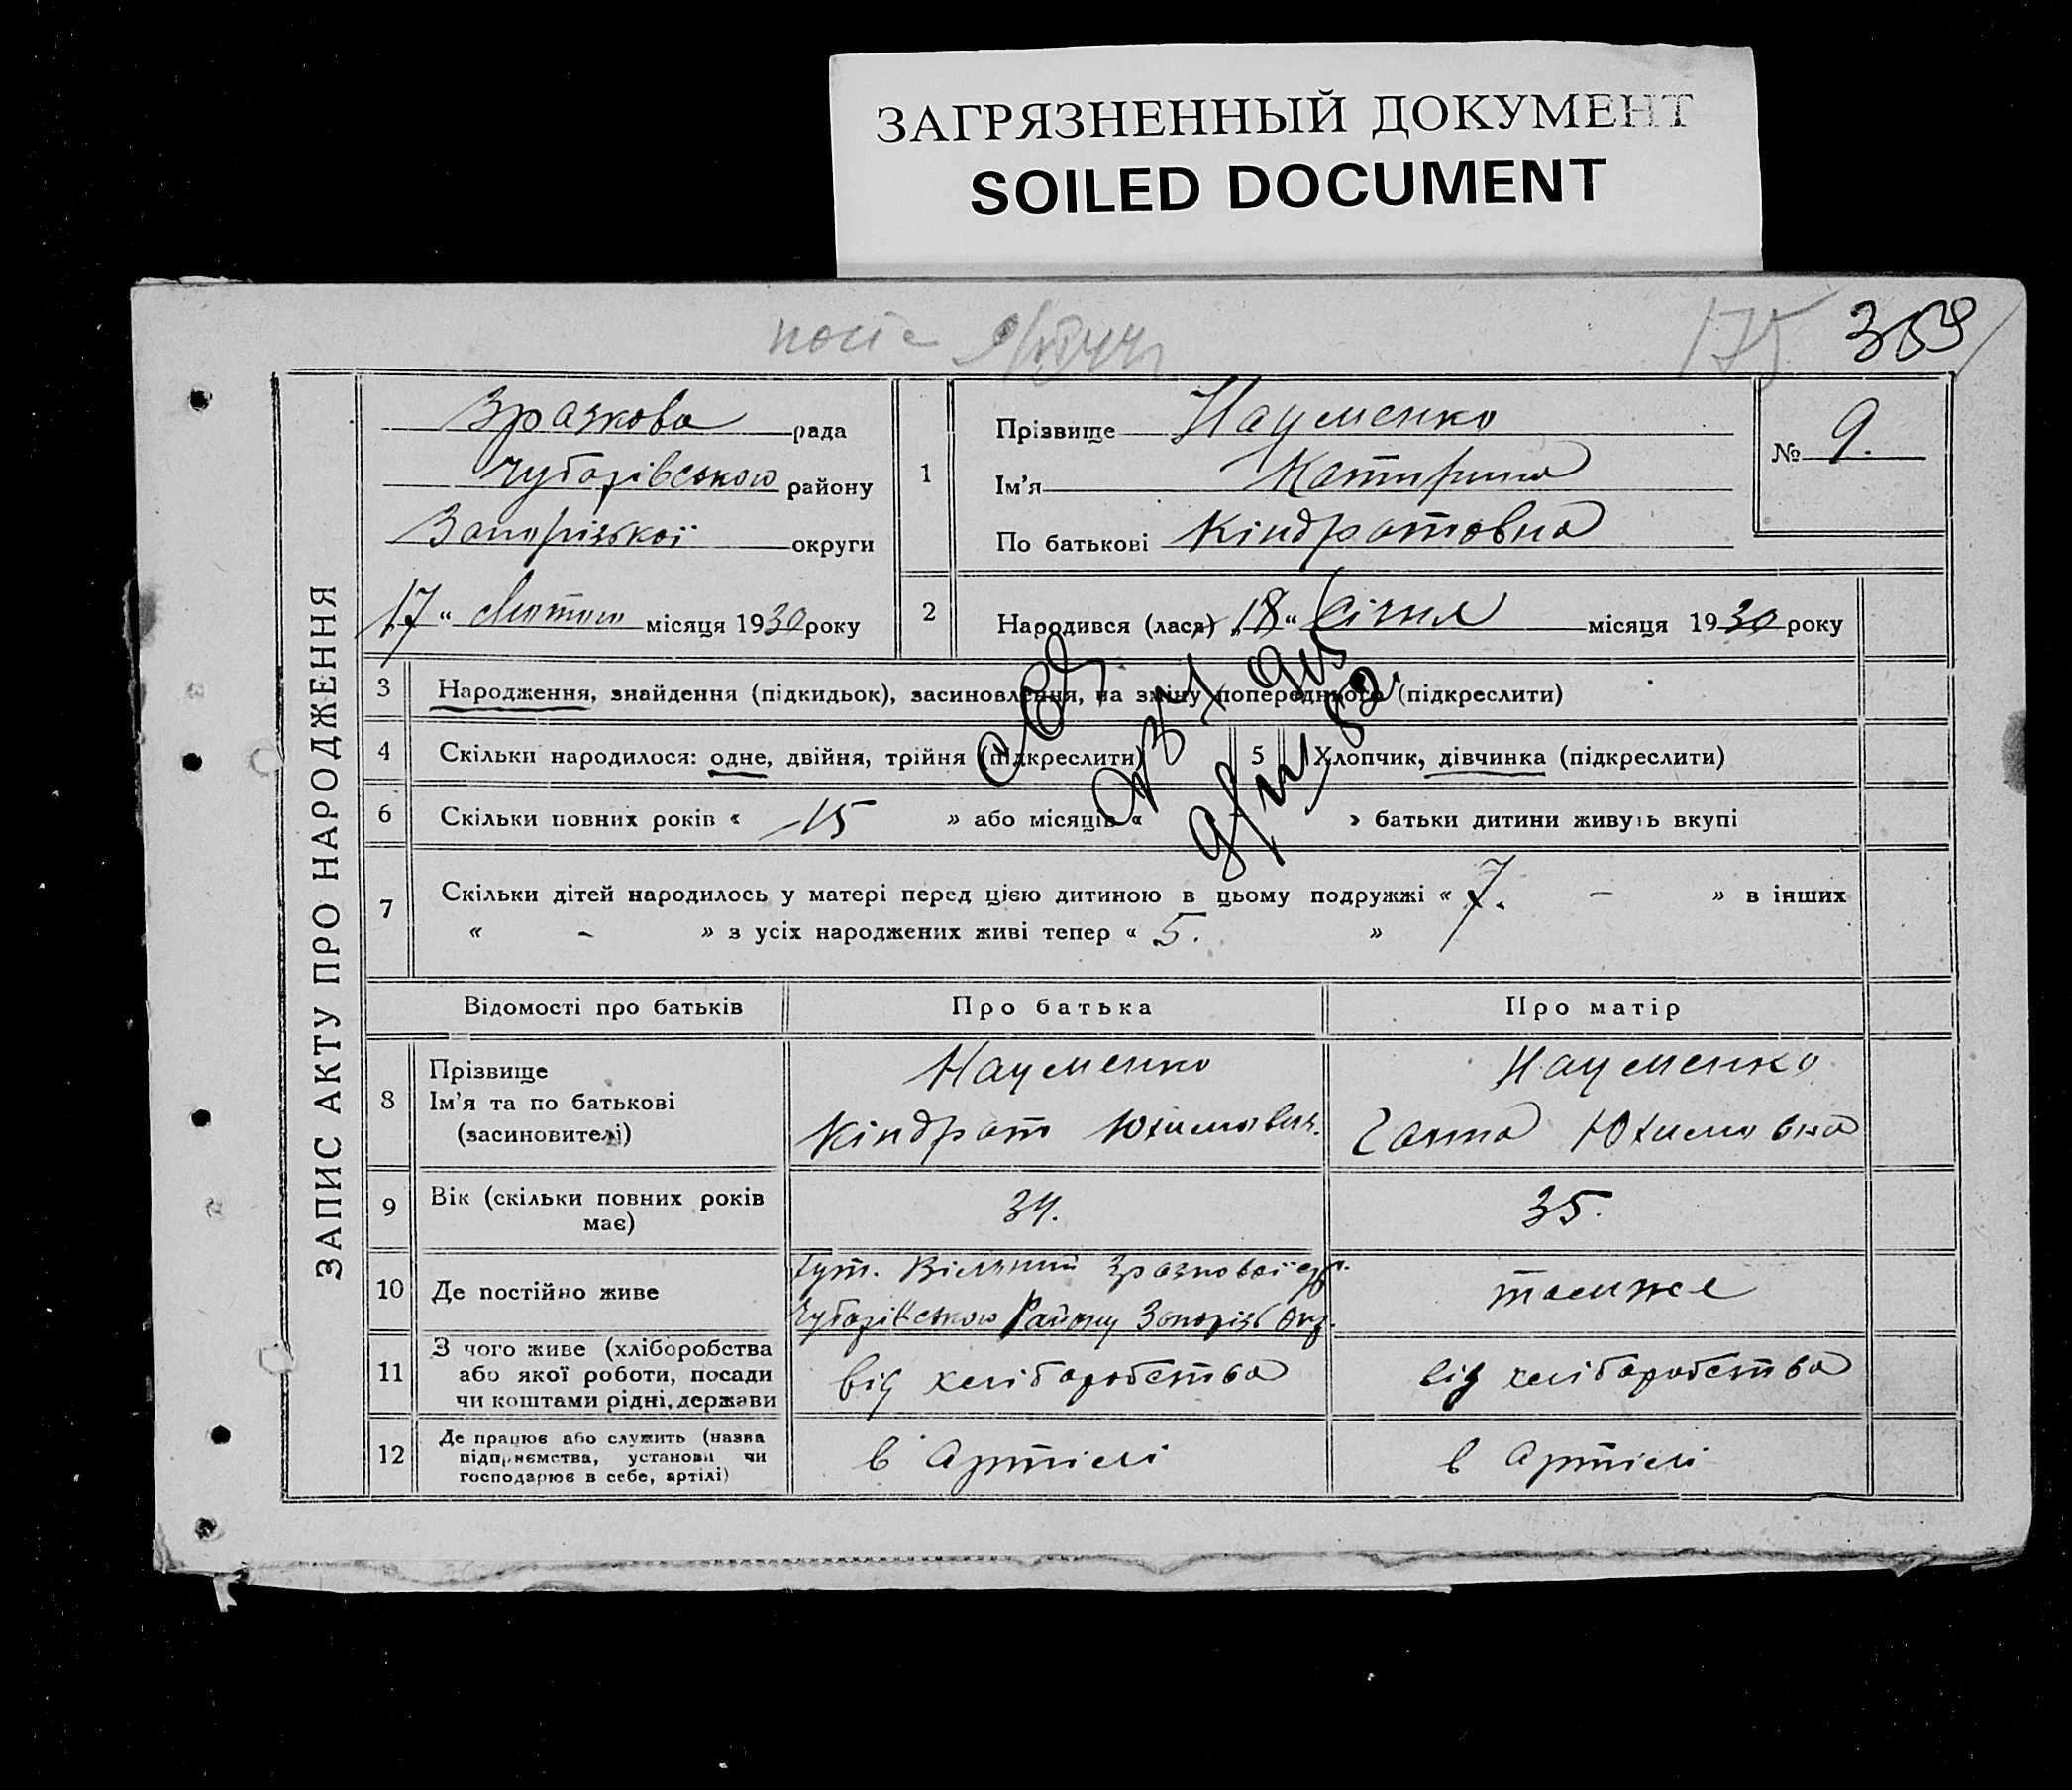 ЗАГРЯЗНЕННЫЙ ДОКУМЕНТ
SOILED DOCUMENT
175 359
ЗАПИС АКТУ ПРО НАРОДЖЕННЯ
Зразкова рада
Чубарівського району
Запорізької округи
17 " Лютого місяця 1930 року
1
Прізвище Науменко
Ім'я Катирина
По батькові Кіндратовна
№ 9.
2
Народився (лася) „18" Січня місяця 1930 року
3
Народження, знайдення (підкидьок), засиновлення, на зміну попереднього (підкреслити)
4
Скільки народилося: одне, двійня, трійня (підкреслити)
5
Хлопчик, дівчинка (підкреслити)
6
Скільки повних років « 15 » або місяців « » батьки дитини живуть вкупі
7
Скільки дітей народилось у матері перед цією дитиною в цьому подружжі « 7. – » в інших
« – » з усіх народжених живі тепер « 5. »
Відомості про батьків
Про батька
Про матір
8
Прізвище
Ім'я та по батькові
(засиновителі)
Науменко
Кіндрат Юхимович.
Науменко
Ганна Юхимовна
9
Вік (скільки повних років
має)
34.
35.
10
Де постійно живе
Хут. Вільний Зразкової с/р.
Чубарівського Району Запорізь Окр.
такиже
11
З чого живе (хліборобства
або якої роботи, посади
чи коштами рідні, держави
від хліборобства
від хліборобства
12
Де працює або служить (назва
підприємства, установи чи
господарює в себе, артілі)
в Артілі
в Артілі